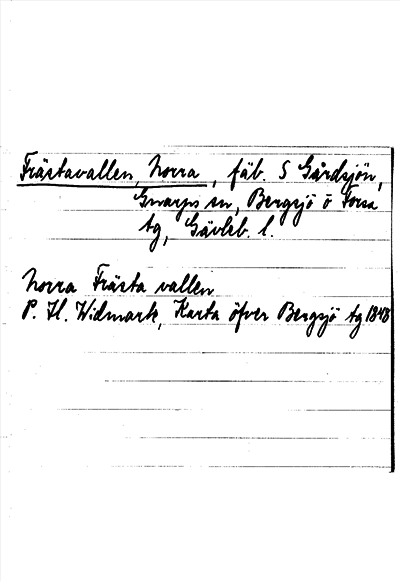 Frästavallen, Norra, fäb. S Gårdsjön,
Gnarps sn, Bergsjö o Forsa
tg, Gävleb. l.
Norra Frästa vallen
P. H. Widmark, Karta öfver Bergsjö tg 1848